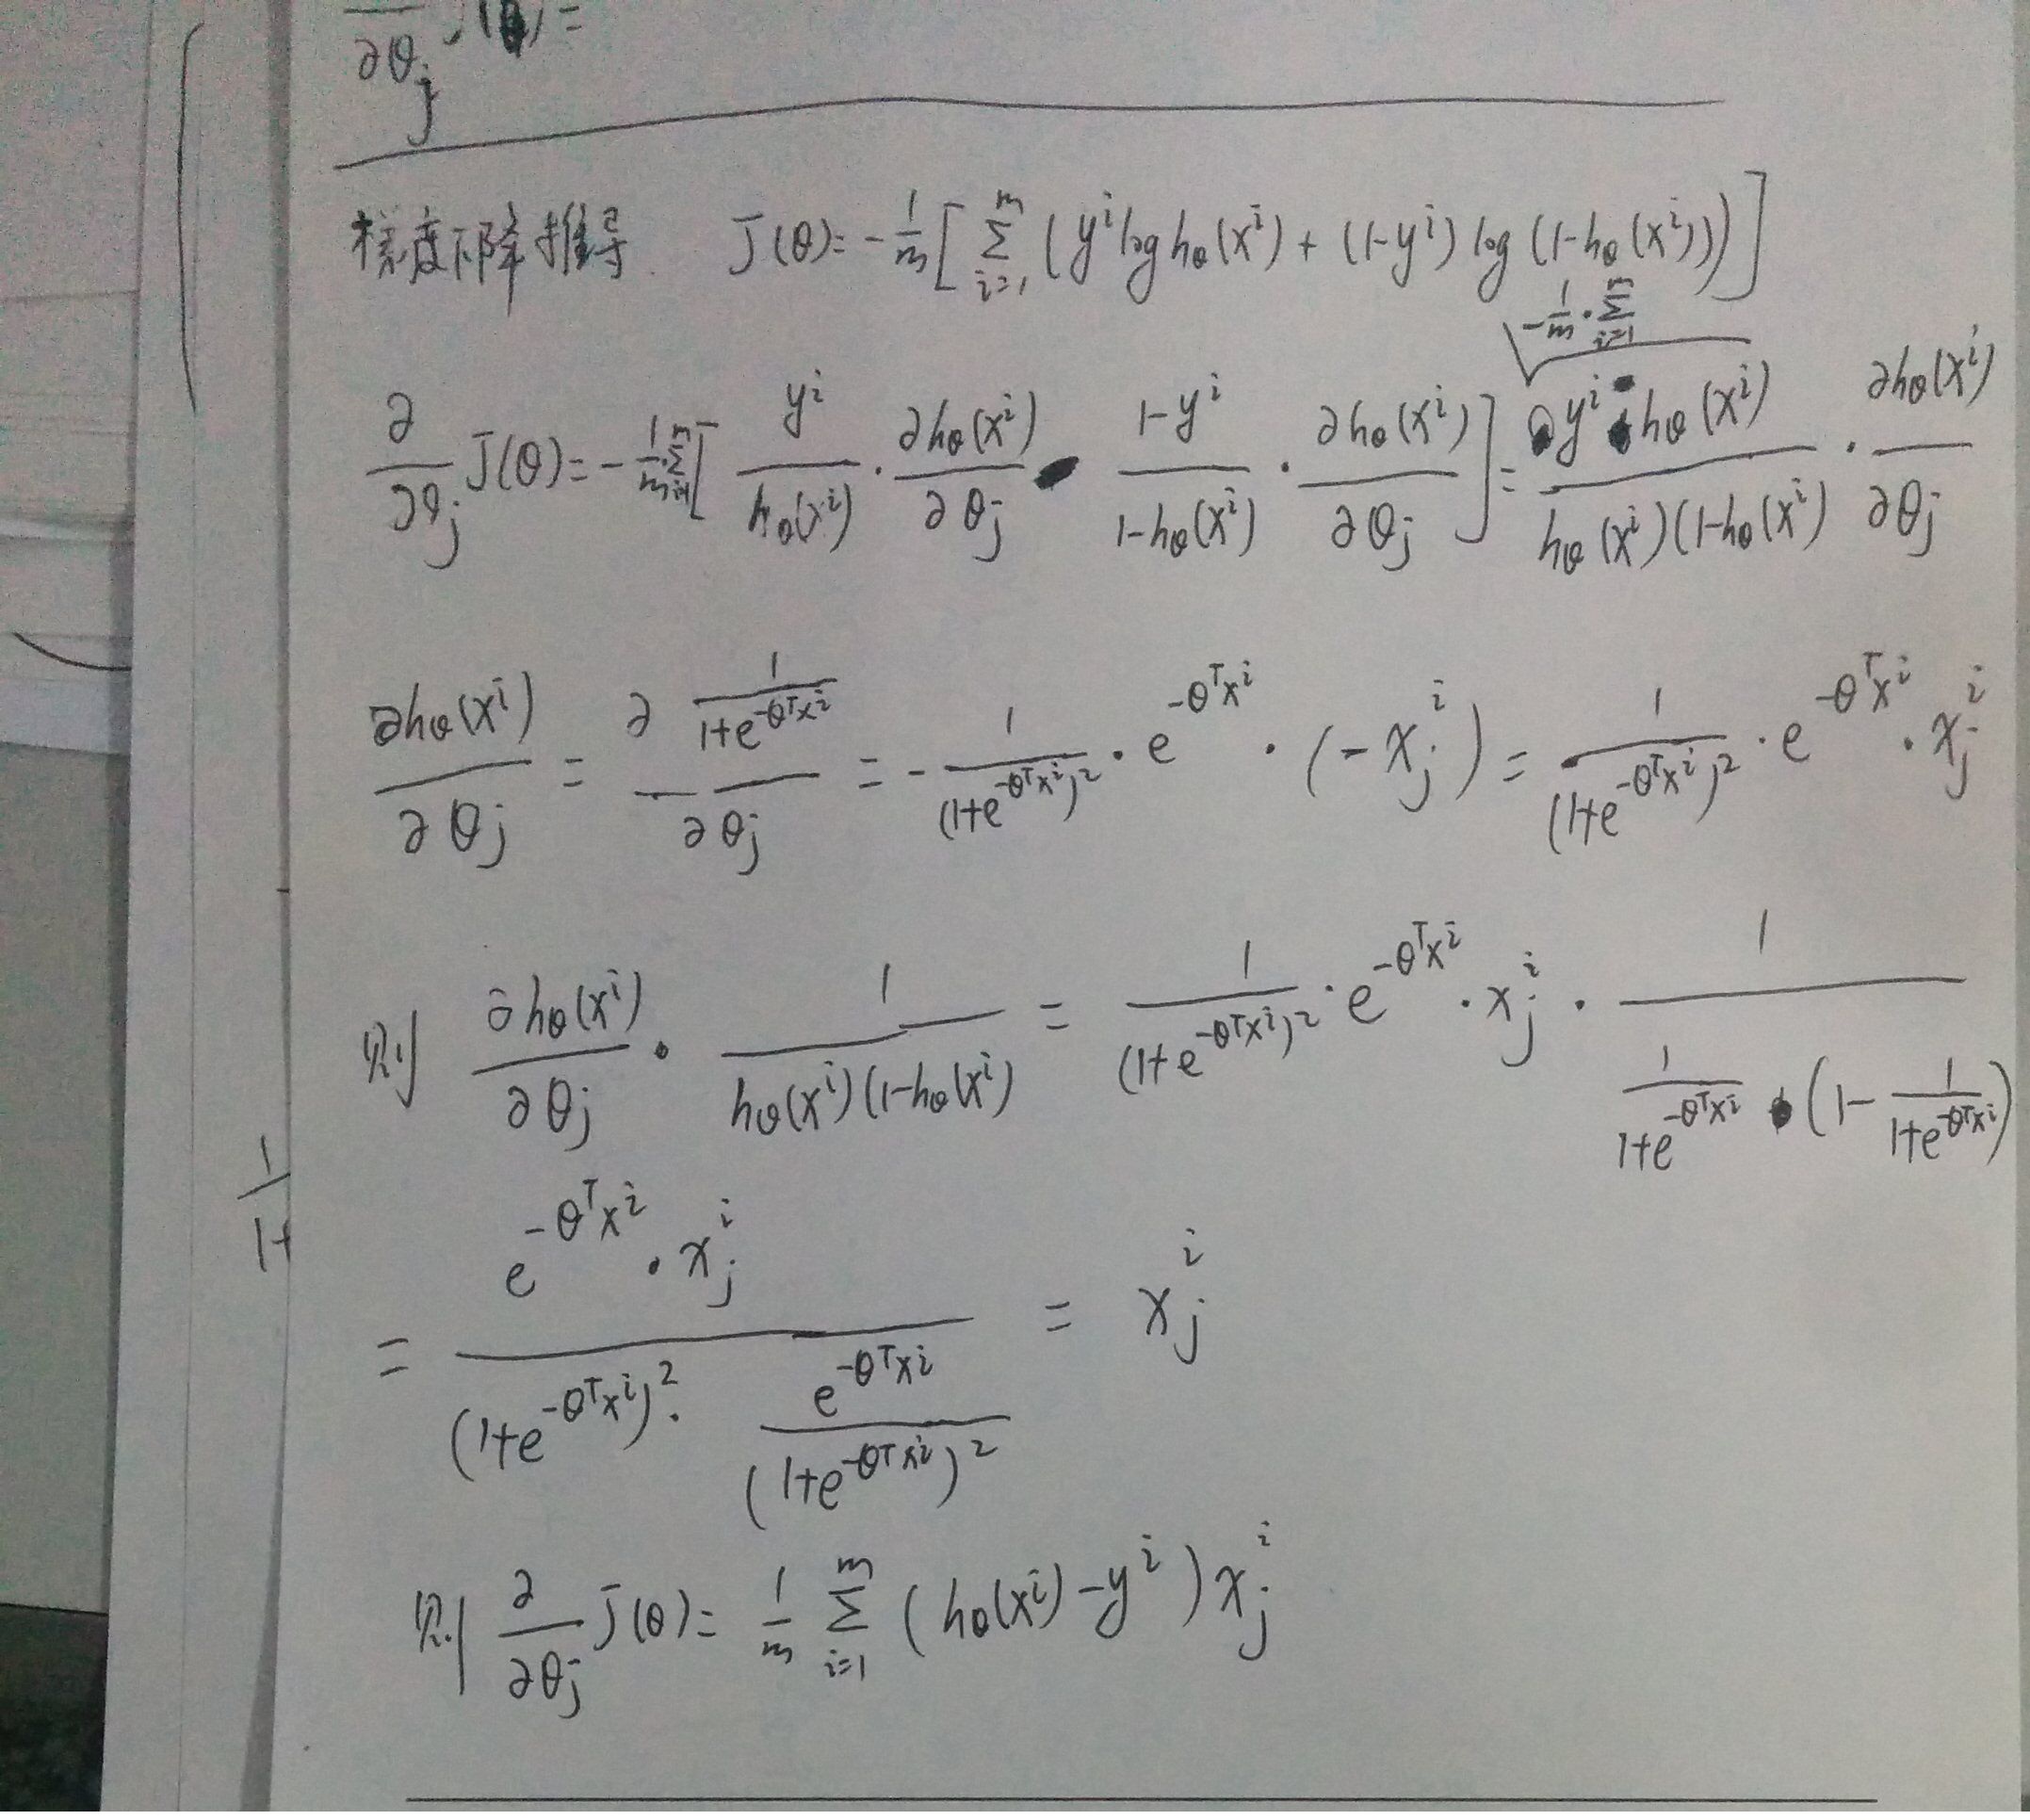 ∂/∂θ_j J(θ) =
梯度下降推导 J(θ) = -1/m [ Σ_{i=1}^{m} ( y^i log h_θ(x^i) + (1-y^i) log (1-h_θ(x^i)) ) ]
-1/m · Σ_{i=1}^{m}
∂/∂θ_j J(θ) = -1/m Σ_{i=1}^{m} [ y^i / h_θ(x^i) · ∂h_θ(x^i)/∂θ_j - (1-y^i)/(1-h_θ(x^i)) · ∂h_θ(x^i)/∂θ_j ] = (y^i - h_θ(x^i)) / (h_θ(x^i)(1-h_θ(x^i)) · ∂h_θ(x^i)/∂θ_j
∂h_θ(x^i)/∂θ_j = ∂ 1/(1+e^{-θ^T x^i}) / ∂θ_j = - 1/(1+e^{-θ^T x^i})^2 · e^{-θ^T x^i} · (-x_j^i) = 1/(1+e^{-θ^T x^i})^2 · e^{-θ^T x^i} · x_j^i
则 ∂h_θ(x^i)/∂θ_j · 1/(h_θ(x^i)(1-h_θ(x^i)) = 1/(1+e^{-θ^T x^i})^2 · e^{-θ^T x^i} · x_j^i · 1 / ( 1/(1+e^{-θ^T x^i}) · (1 - 1/(1+e^{-θ^T x^i})) )
1/1+
= e^{-θ^T x^i} · x_j^i / ( (1+e^{-θ^T x^i})^2 · e^{-θ^T x^i}/(1+e^{-θ^T x^i})^2 ) = x_j^i
则 ∂/∂θ_j J(θ) = 1/m Σ_{i=1}^{m} ( h_θ(x^i) - y^i ) x_j^i